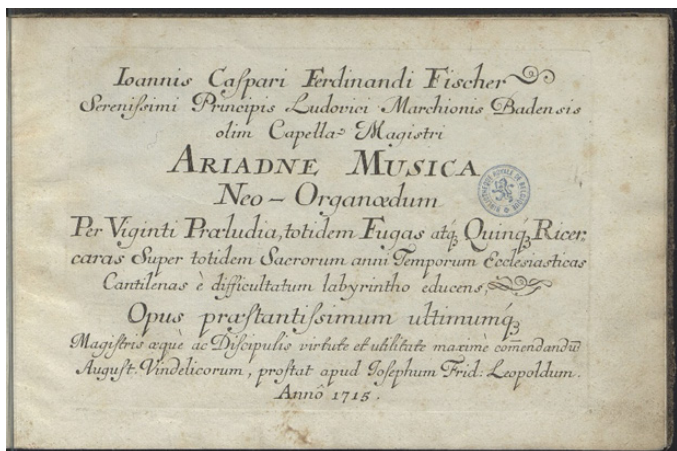 Ioannis Caſpari Ferdinandi Fiſcher
Sereniſsimi Principis Ludovici Marchionis Badensis
olim Capellæ Magistri
ARIADNE MUSICA
Neo-Organœdum
Per Viginti Præludia, totidem Fugas atq́ꝫ Quinq́ꝫ Ricer:
caras Super totidem Sacrorum anni Temporum Eccleſiasticas
Cantilenas è difficultatum labyrintho educens,
Opus præſtantiſsimum ultimumq́ꝫ
Magiſtris æquè ac Diſcipulis virtute et utilitate maximè com̄endandū
August. Vindelicorum, proſtat apud Joſephum Frid: Leopoldum.
Annô 1715.
BIBLIOTHEQUE ROYALE DE BELGIQUE